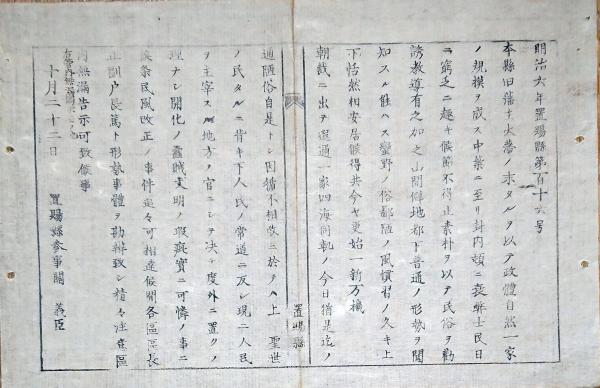 明治六年置賜縣第百十六号
本縣旧藩主大藩ノ末タルヲ以テ政體自然一家
ノ規模ヲ成ス中葉ニ至リ封内頻ニ衰弊士民日
ニ窮乏ニ趣キ候節不得止素朴ヲ以テ民俗ヲ勸
誘教導有之加之山間僻地都下普通ノ形勢ヲ聞
知スル能ハス蠻野ノ俗鄙陋ノ風慣習ノ久キ上
下恬然相安居候得共今ヤ更始一新万機
朝裁ニ出テ遐邇一家四海同軌ノ今日猶是迄ノ
置賜縣
通陋俗自是トシ因循不相改ニ於テハ上 聖世
ノ民タルニ背キ下人民ノ常道ニ反シ現ニ人民
ヲ主宰スル地方ノ官ニシテ決テ度外ニ置クノ
理ナシ開化ノ蠧賊文明ノ瑕疵實ニ可憐ノ事ニ
候条民風改正ノ事件追々可相達候間各區區長
正副戸長篤ト形勢事體ヲ勘辨致シ精々注意區
内無漏告示可致候事
十月二十二日 置賜縣参事關 義臣